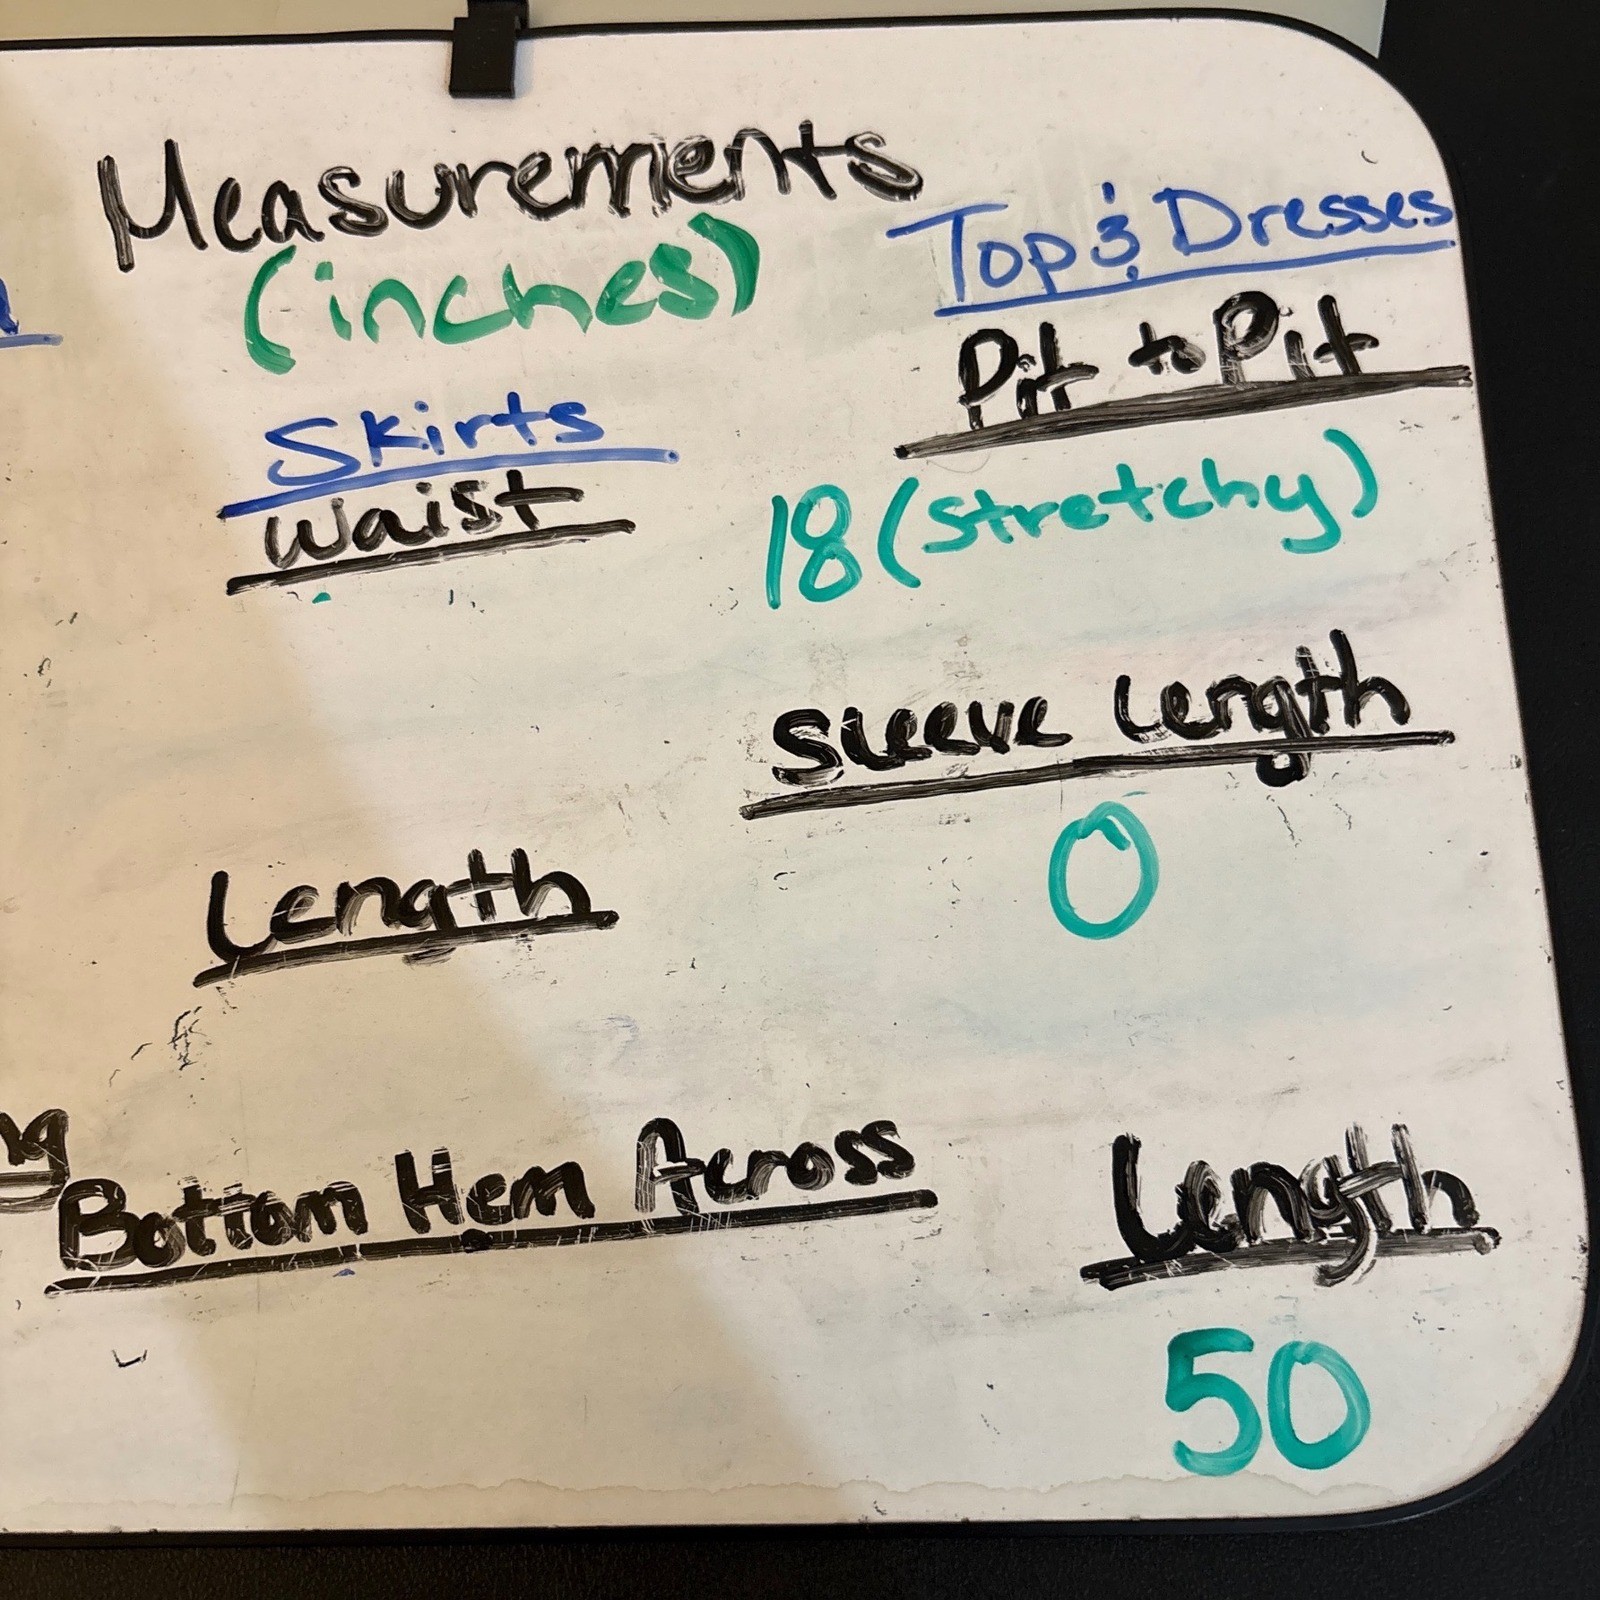 Measurements
(inches)
Skirts
Waist
Length
Bottom Hem Across
Top & Dresses
Pit to Pit
18 (stretchy)
Sleeve Length
0
Length
50